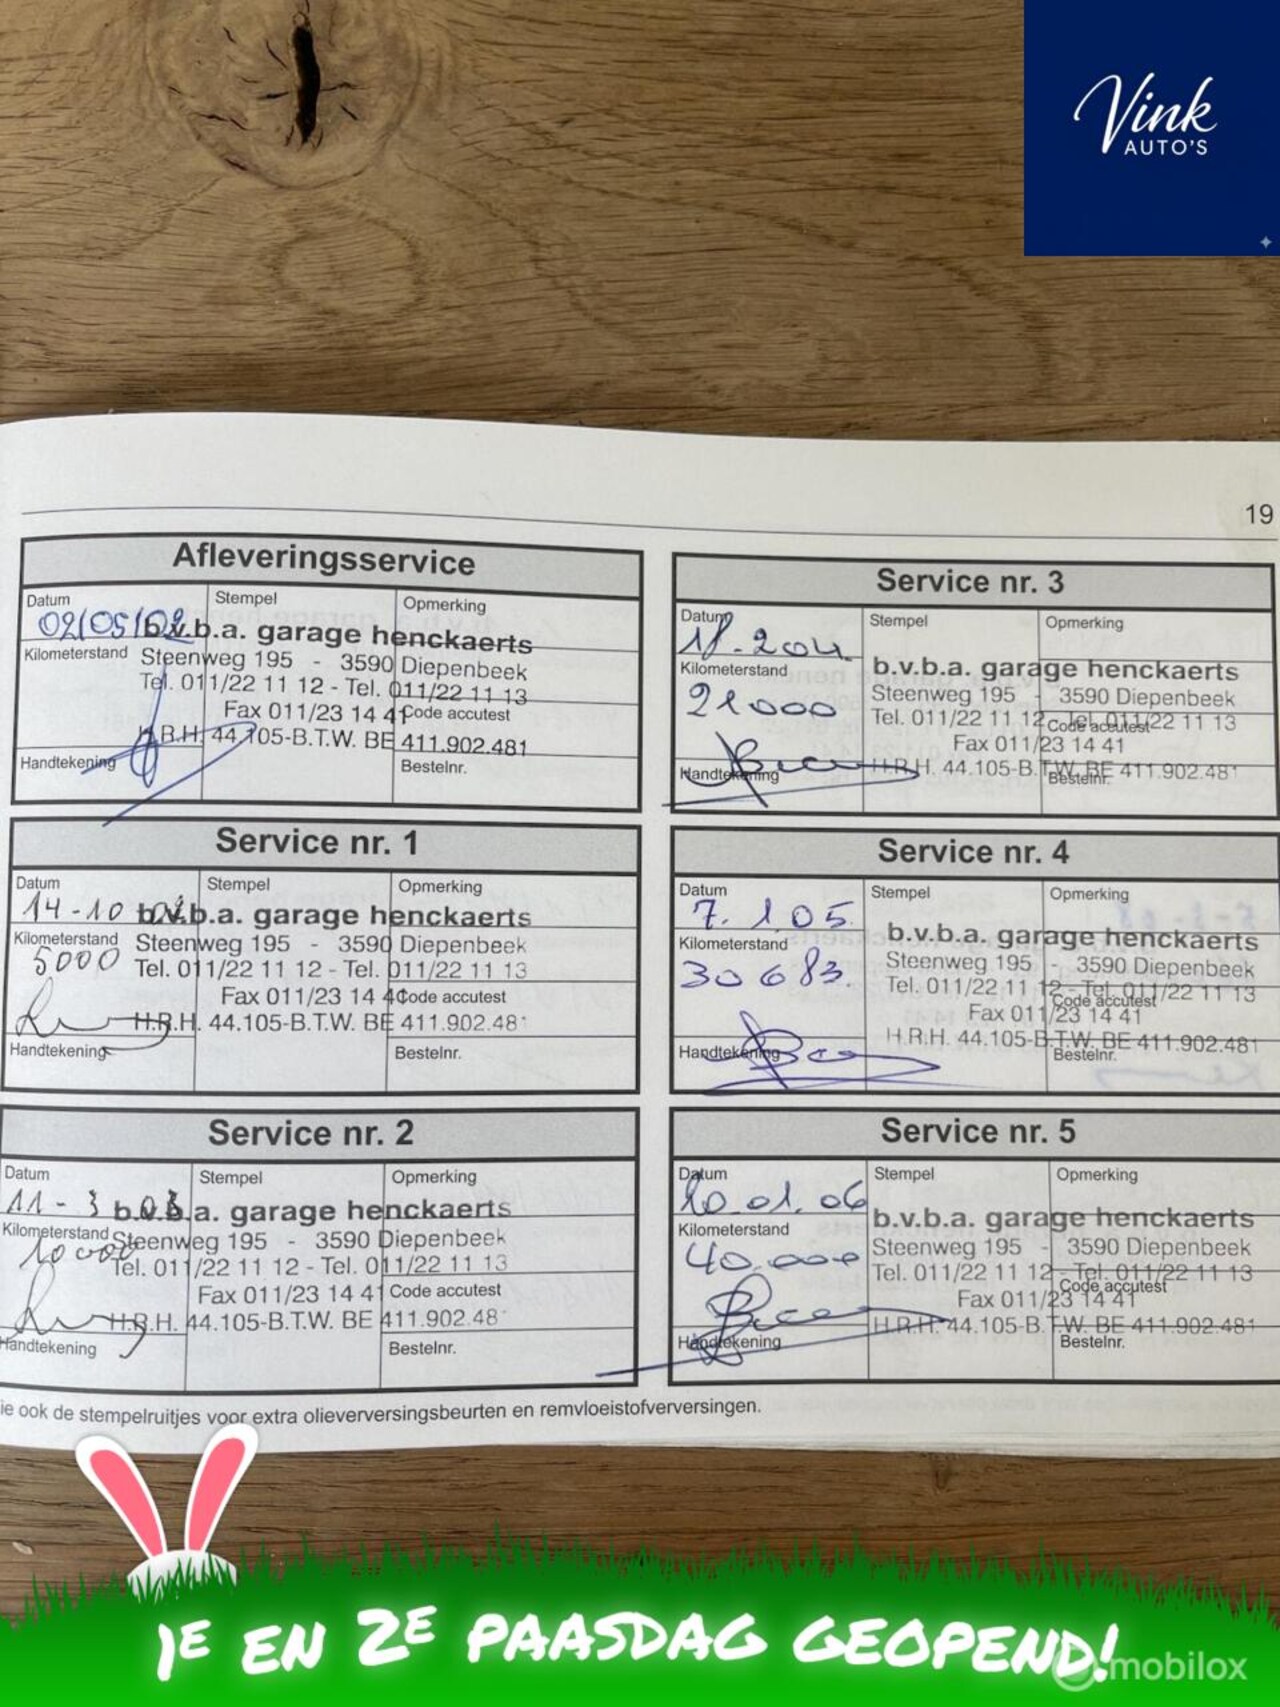 Vink
AUTO'S
19
Afleveringsservice
Datum
Stempel
Opmerking
02/05/02
b.v.b.a. garage henckaerts
Kilometerstand
Steenweg 195 - 3590 Diepenbeek
Tel. 011/22 11 12 - Tel. 011/22 11 13
Fax 011/23 14 41
Code accutest
H.R.H. 44.105-B.T.W. BE 411.902.481
Handtekening
Bestelnr.
Service nr. 1
Datum
Stempel
Opmerking
14-10
b.v.b.a. garage henckaerts
Kilometerstand
5000
Steenweg 195 - 3590 Diepenbeek
Tel. 011/22 11 12 - Tel. 011/22 11 13
Fax 011/23 14 4
Code accutest
H.R.H. 44.105-B.T.W. BE 411.902.48
Handtekening
Bestelnr.
Service nr. 2
Datum
Stempel
Opmerking
11-3 03
b.v.b.a. garage henckaerts
Kilometerstand
10000
Steenweg 195 - 3590 Diepenbeek
Tel. 011/22 11 12 - Tel. 011/22 11 13
Fax 011/23 14 41
Code accutest
H.R.H. 44.105-B.T.W. BE 411.902.48
Handtekening
Bestelnr.
Service nr. 3
Datum
Stempel
Opmerking
b.v.b.a. garage henckaerts
Kilometerstand
21000
Steenweg 195 - 3590 Diepenbeek
Tel. 011/22 11 12 - Tel. 011/22 11 13
Code accutest
Fax 011/23 14 41
H.R.H. 44.105-B.T.W. BE 411.902.481
Handtekening
Bestelnr.
Service nr. 4
Datum
Stempel
Opmerking
7.1.05
b.v.b.a. garage henckaerts
Kilometerstand
30683.
Steenweg 195 - 3590 Diepenbeek
Tel. 011/22 11 12 - Tel. 011/22 11 13
Code accutest
Fax 011/23 14 41
H.R.H. 44.105-B.T.W. BE 411.902.481
Handtekening
Bestelnr.
Service nr. 5
Datum
Stempel
Opmerking
10.01.06
b.v.b.a. garage henckaerts
Kilometerstand
40.000
Steenweg 195 - 3590 Diepenbeek
Tel. 011/22 11 12 - Tel. 011/22 11 13
Code accutest
Fax 011/23 14 41
H.R.H. 44.105-B.T.W. BE 411.902.481
Handtekening
Bestelnr.
ie ook de stempelruitjes voor extra olieverversingsbeurten en remvloeistofverversingen.
1E EN 2E PAASDAG GEOPEND!
mobilox